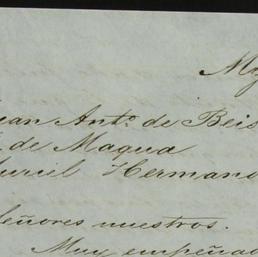 My
Juan Antº. de Beis
de Magua
uriel Hermano
Señores nuestros.
Muy empeñad